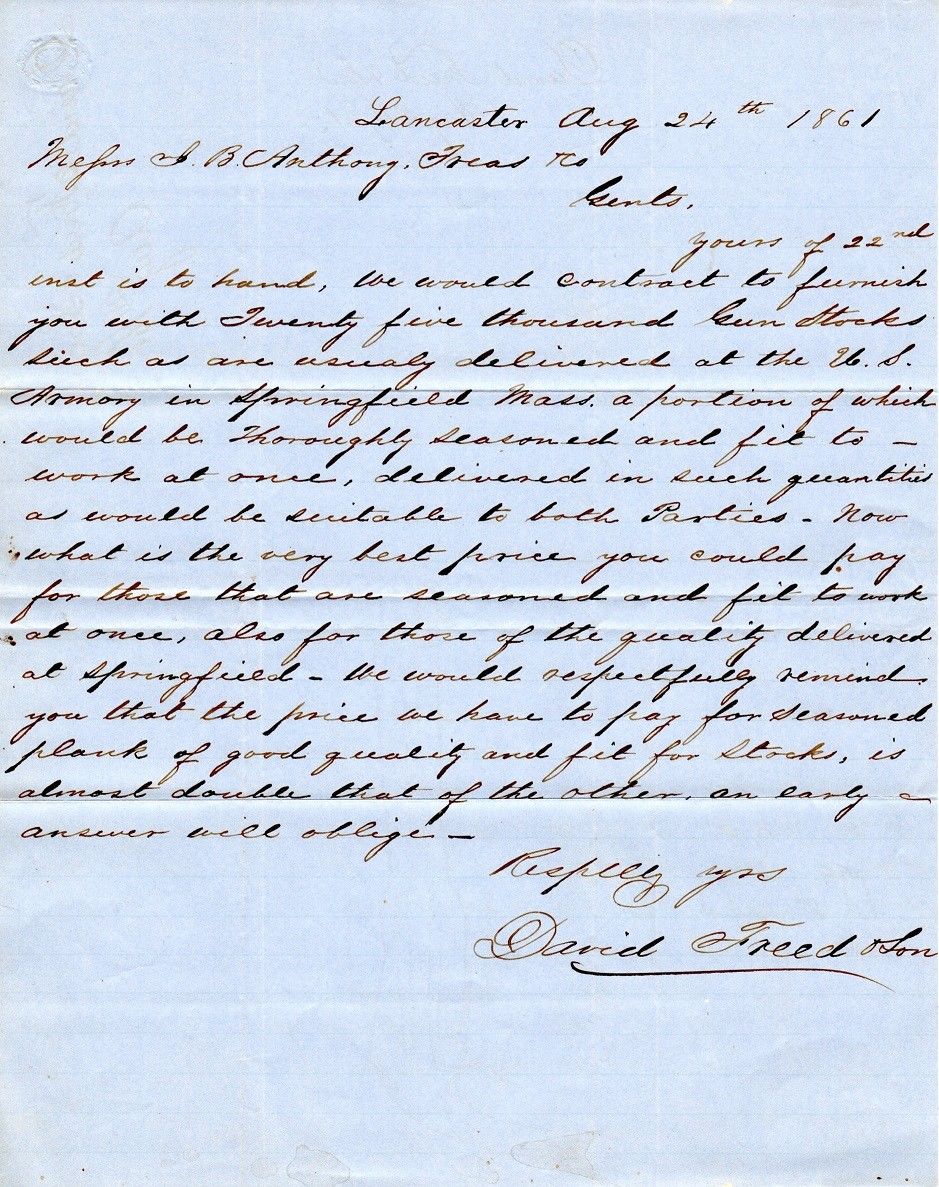 Lancaster Aug 24th 1861
Messrs J. B Anthony, Treas &co
Gents,
yours of 22nd
inst is to hand, We would contract to furnish
you with Twenty five thousand Gun Stocks
such as are usualy delivered at the U. S.
Armory in Springfield Mass. a portion of which
would be Thoroughly seasoned and fit to –
work at once, delivered in such quantities
as would be suitable to both Parties – Now
what is the very best price you could pay
for those that are seasoned and fit to work
at once, also for those of the quality delivered
at Springfield – We would respectfully remind
you that the price we have to pay for seasoned
plank of good quality and fit for Stocks, is
almost double that of the other, an early
answer will oblige –
Respllly yrs
David Freed & Son